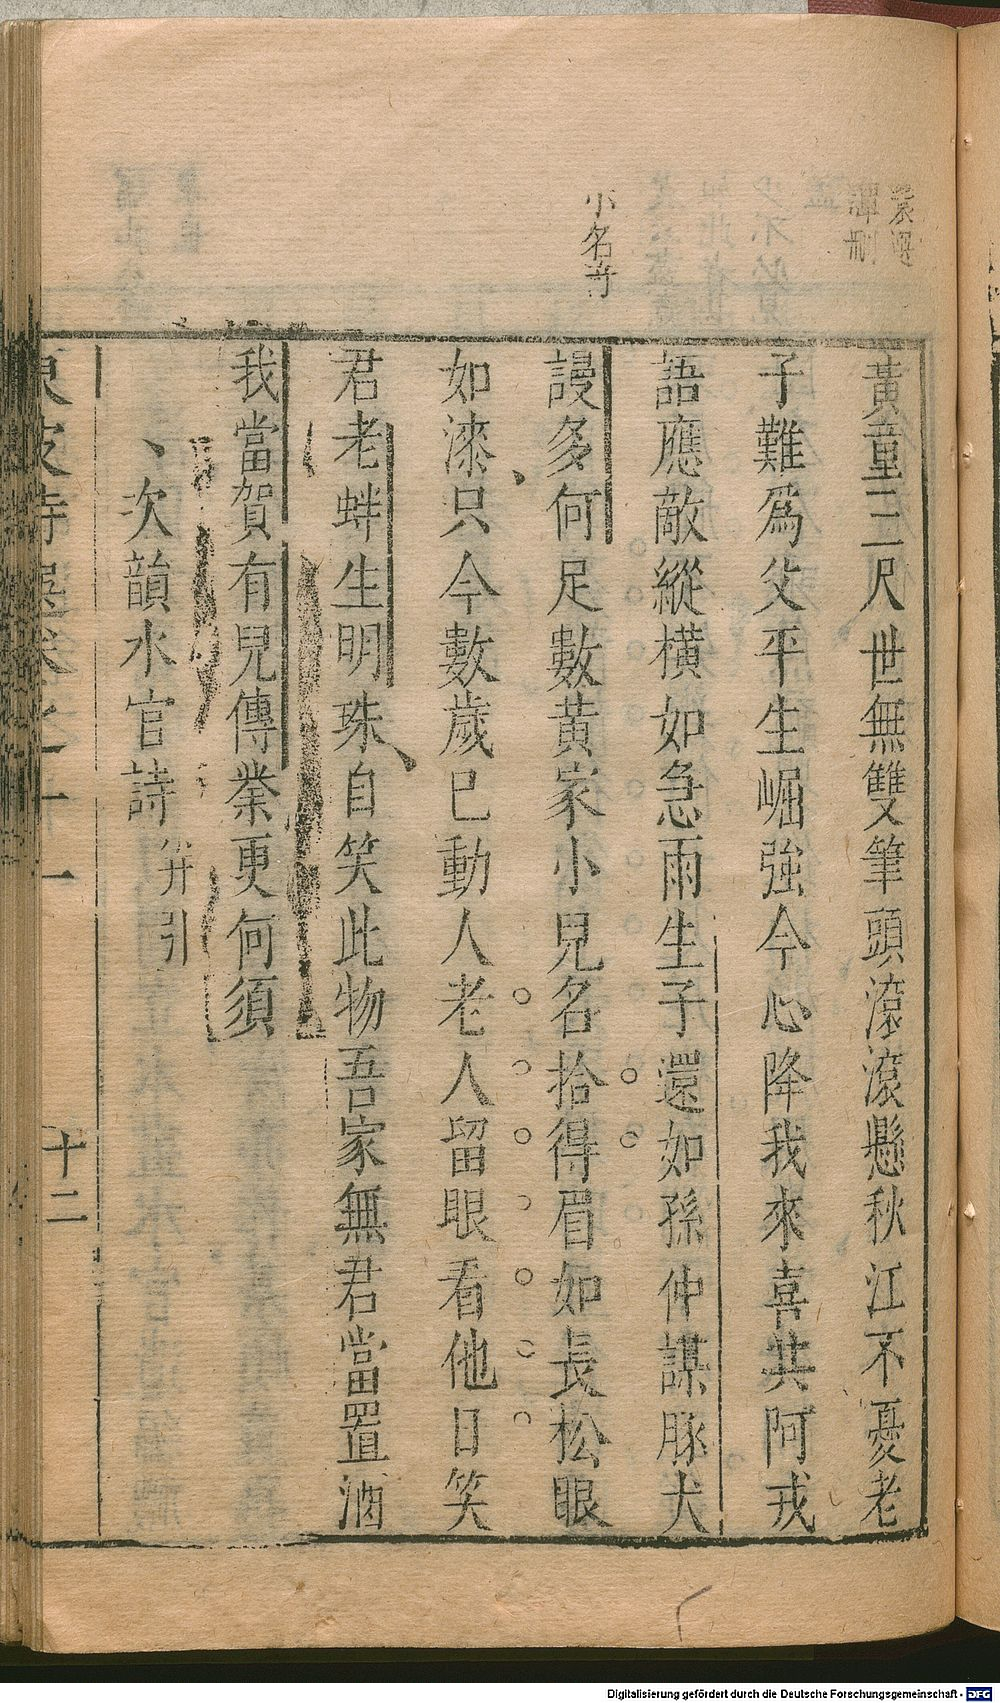 譚刪
小名奇
黃童三尺世無雙筆頭滾滾懸秋江不憂老
子難爲父平生崛強今心降我來喜共阿戎
語應敵縱橫如急雨生子還如孫仲謀豚犬
謾多何足數黃家小兒名拾得眉如長松眼
如漆只今數歲已動人老人留眼看他日笑
君老蚌生明珠自笑此物吾家無君當置酒
我當賀有兒傳業更何須
次韻水官詩 并引
東坡詩選卷之十一
十二
Digitalisierung gefördert durch die Deutsche Forschungsgemeinschaft - DFG